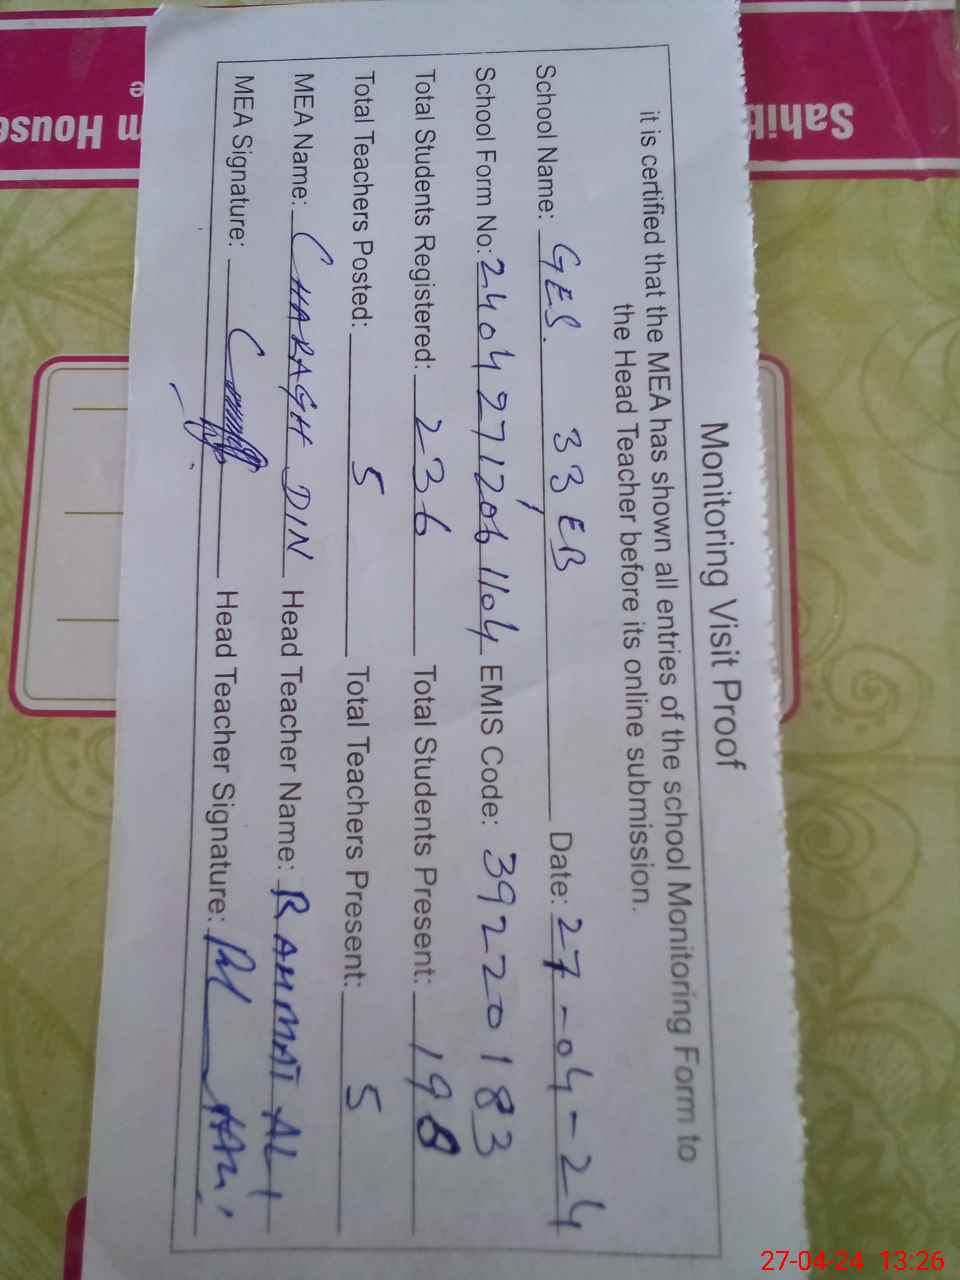 Monitoring Visit Proof
it is certified that the MEA has shown all entries of the school Monitoring Form to
the Head Teacher before its online submission.
School Name: GES. 33 EB Date: 27-04-24
School Form No: 2404271206 1104 EMIS Code: 39220183
Total Students Registered: 236 Total Students Present: 198
Total Teachers Posted: 5 Total Teachers Present: 5
MEA Name: CHARAGH DIN Head Teacher Name: RAHMAT ALI
MEA Signature: Head Teacher Signature:
Sahib
m House
27-04-24 13:26